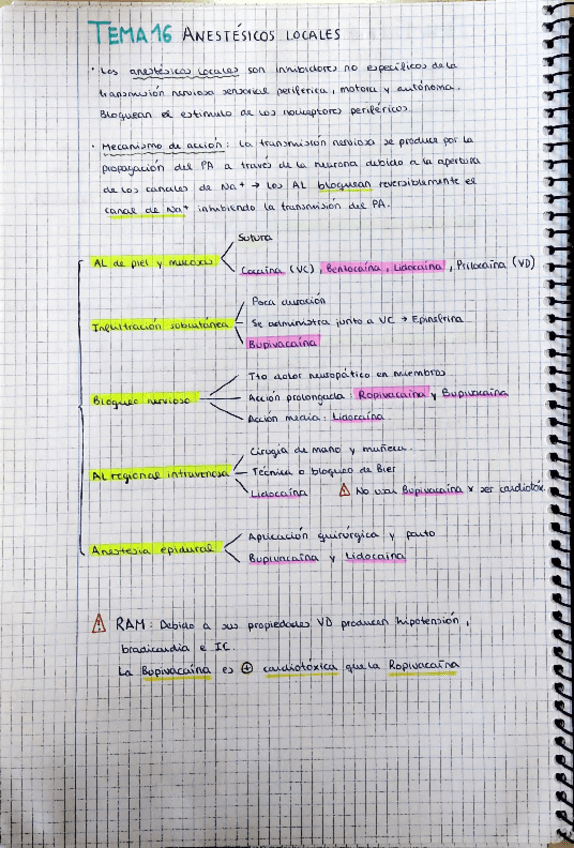 TEMA 16 ANESTÉSICOS LOCALES
· Los anestésicos locales son inhibidores no específicos de la
transmisión nerviosa sensorial periférica, motora y autónoma.
Bloquean el estímulo de los nociceptores periféricos.
· Mecanismo de acción: La transmisión nerviosa se produce por la
propagación del PA a través de la neurona debido a la apertura
de los canales de Na+ → Los AL bloquean reversiblemente el
canal de Na+ inhibiendo la transmisión del PA.
AL de piel y mucosas
Sutura
Cocaína (VC), Benzocaína, Lidocaína, Prilocaína (VD)
Infiltración subcutánea
Poca duración
Se administra junto a VC → Epinefrina
Bupivacaína
Bloqueo nervioso
Tto dolor neuropático en miembros
Acción prolongada: Ropivacaína y Bupivacaína
Acción media: Lidocaína
AL regional intravenosa
Cirugía de mano y muñeca.
Técnica o bloqueo de Bier
Lidocaína ⚠ No usar Bupivacaína x ser cardiotóx.
Anestesia epidural
Aplicación quirúrgica y parto
Bupivacaína y Lidocaína
⚠ RAM: Debido a sus propiedades VD producen hipotensión,
bradicardia e IC.
La Bupivacaína es ⊕ cardiotóxica que la Ropivacaína